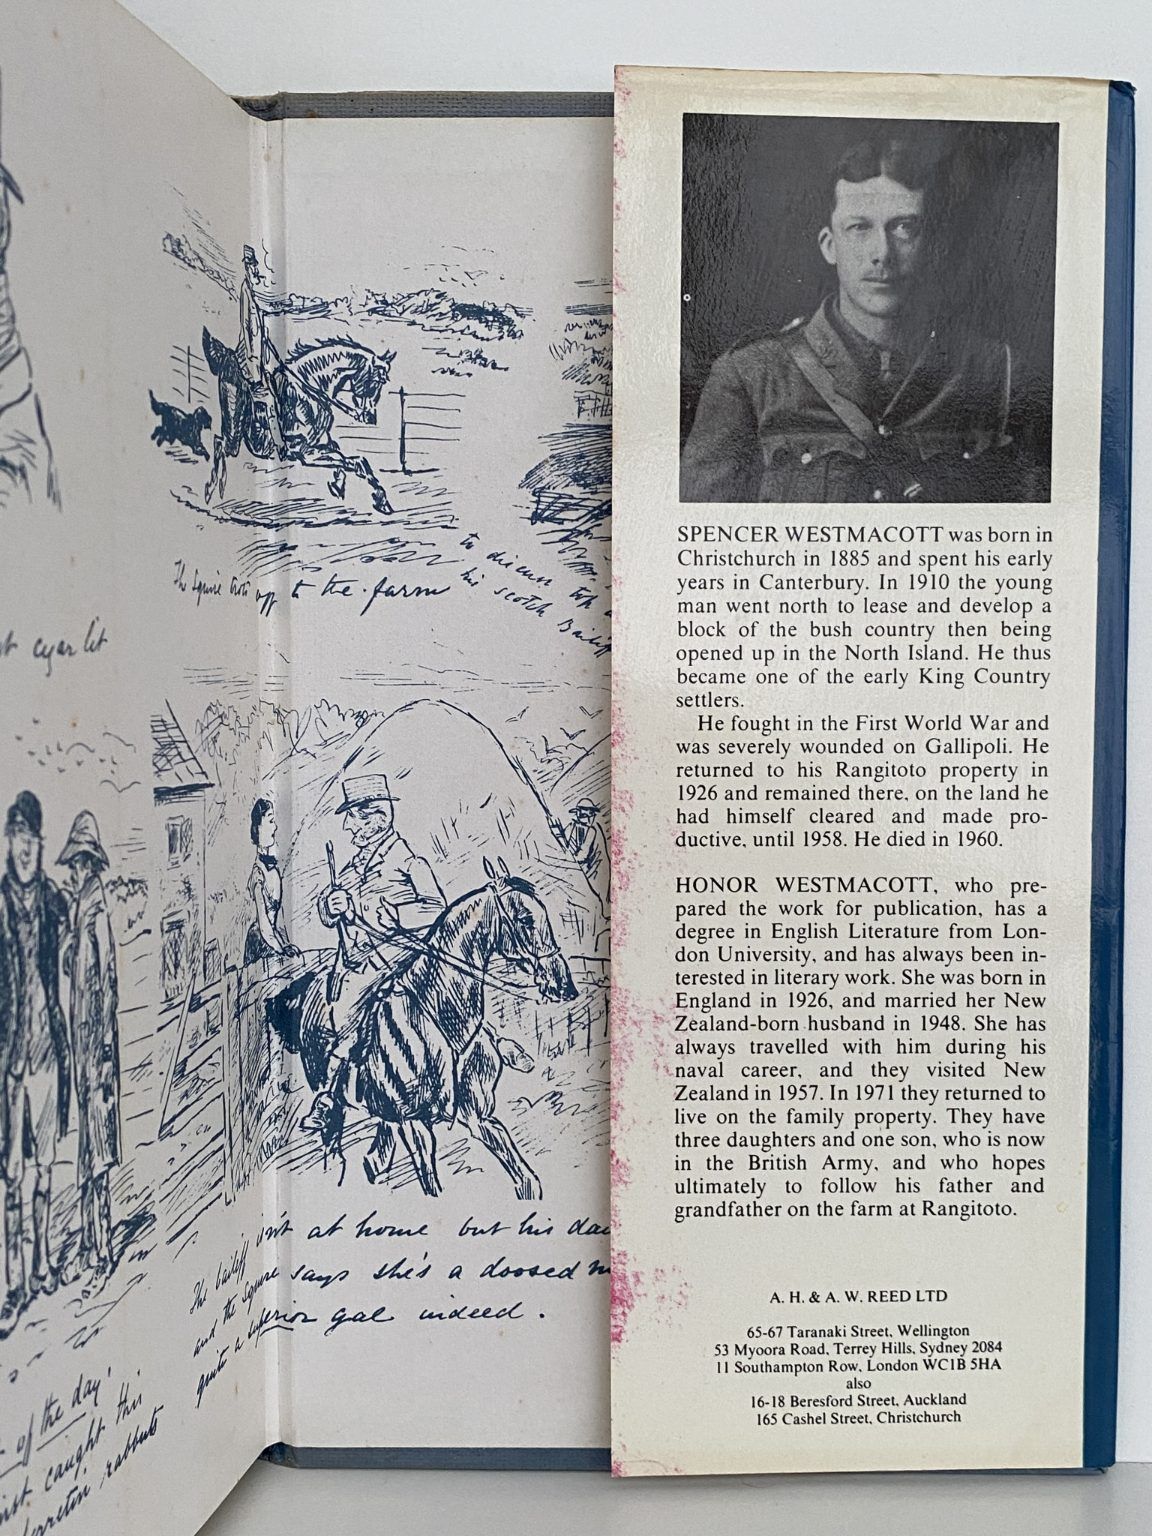 to discuss
The Squire trots off to the farm
his scotch Bailiff
cigar lit
The bailiff isn't at home but his
and the squire says she's a doosed
quite a superior gal indeed.
of the day'
caught this
rabbits
SPENCER WESTMACOTT was born in
Christchurch in 1885 and spent his early
years in Canterbury. In 1910 the young
man went north to lease and develop a
block of the bush country then being
opened up in the North Island. He thus
became one of the early King Country
settlers.
He fought in the First World War and
was severely wounded on Gallipoli. He
returned to his Rangitoto property in
1926 and remained there, on the land he
had himself cleared and made pro-
ductive, until 1958. He died in 1960.
HONOR WESTMACOTT, who pre-
pared the work for publication, has a
degree in English Literature from Lon-
don University, and has always been in-
terested in literary work. She was born in
England in 1926, and married her New
Zealand-born husband in 1948. She has
always travelled with him during his
naval career, and they visited New
Zealand in 1957. In 1971 they returned to
live on the family property. They have
three daughters and one son, who is now
in the British Army, and who hopes
ultimately to follow his father and
grandfather on the farm at Rangitoto.
A. H. & A. W. REED LTD
65-67 Taranaki Street, Wellington
53 Myoora Road, Terrey Hills, Sydney 2084
11 Southampton Row, London WC1B 5HA
also
16-18 Beresford Street, Auckland
165 Cashel Street, Christchurch